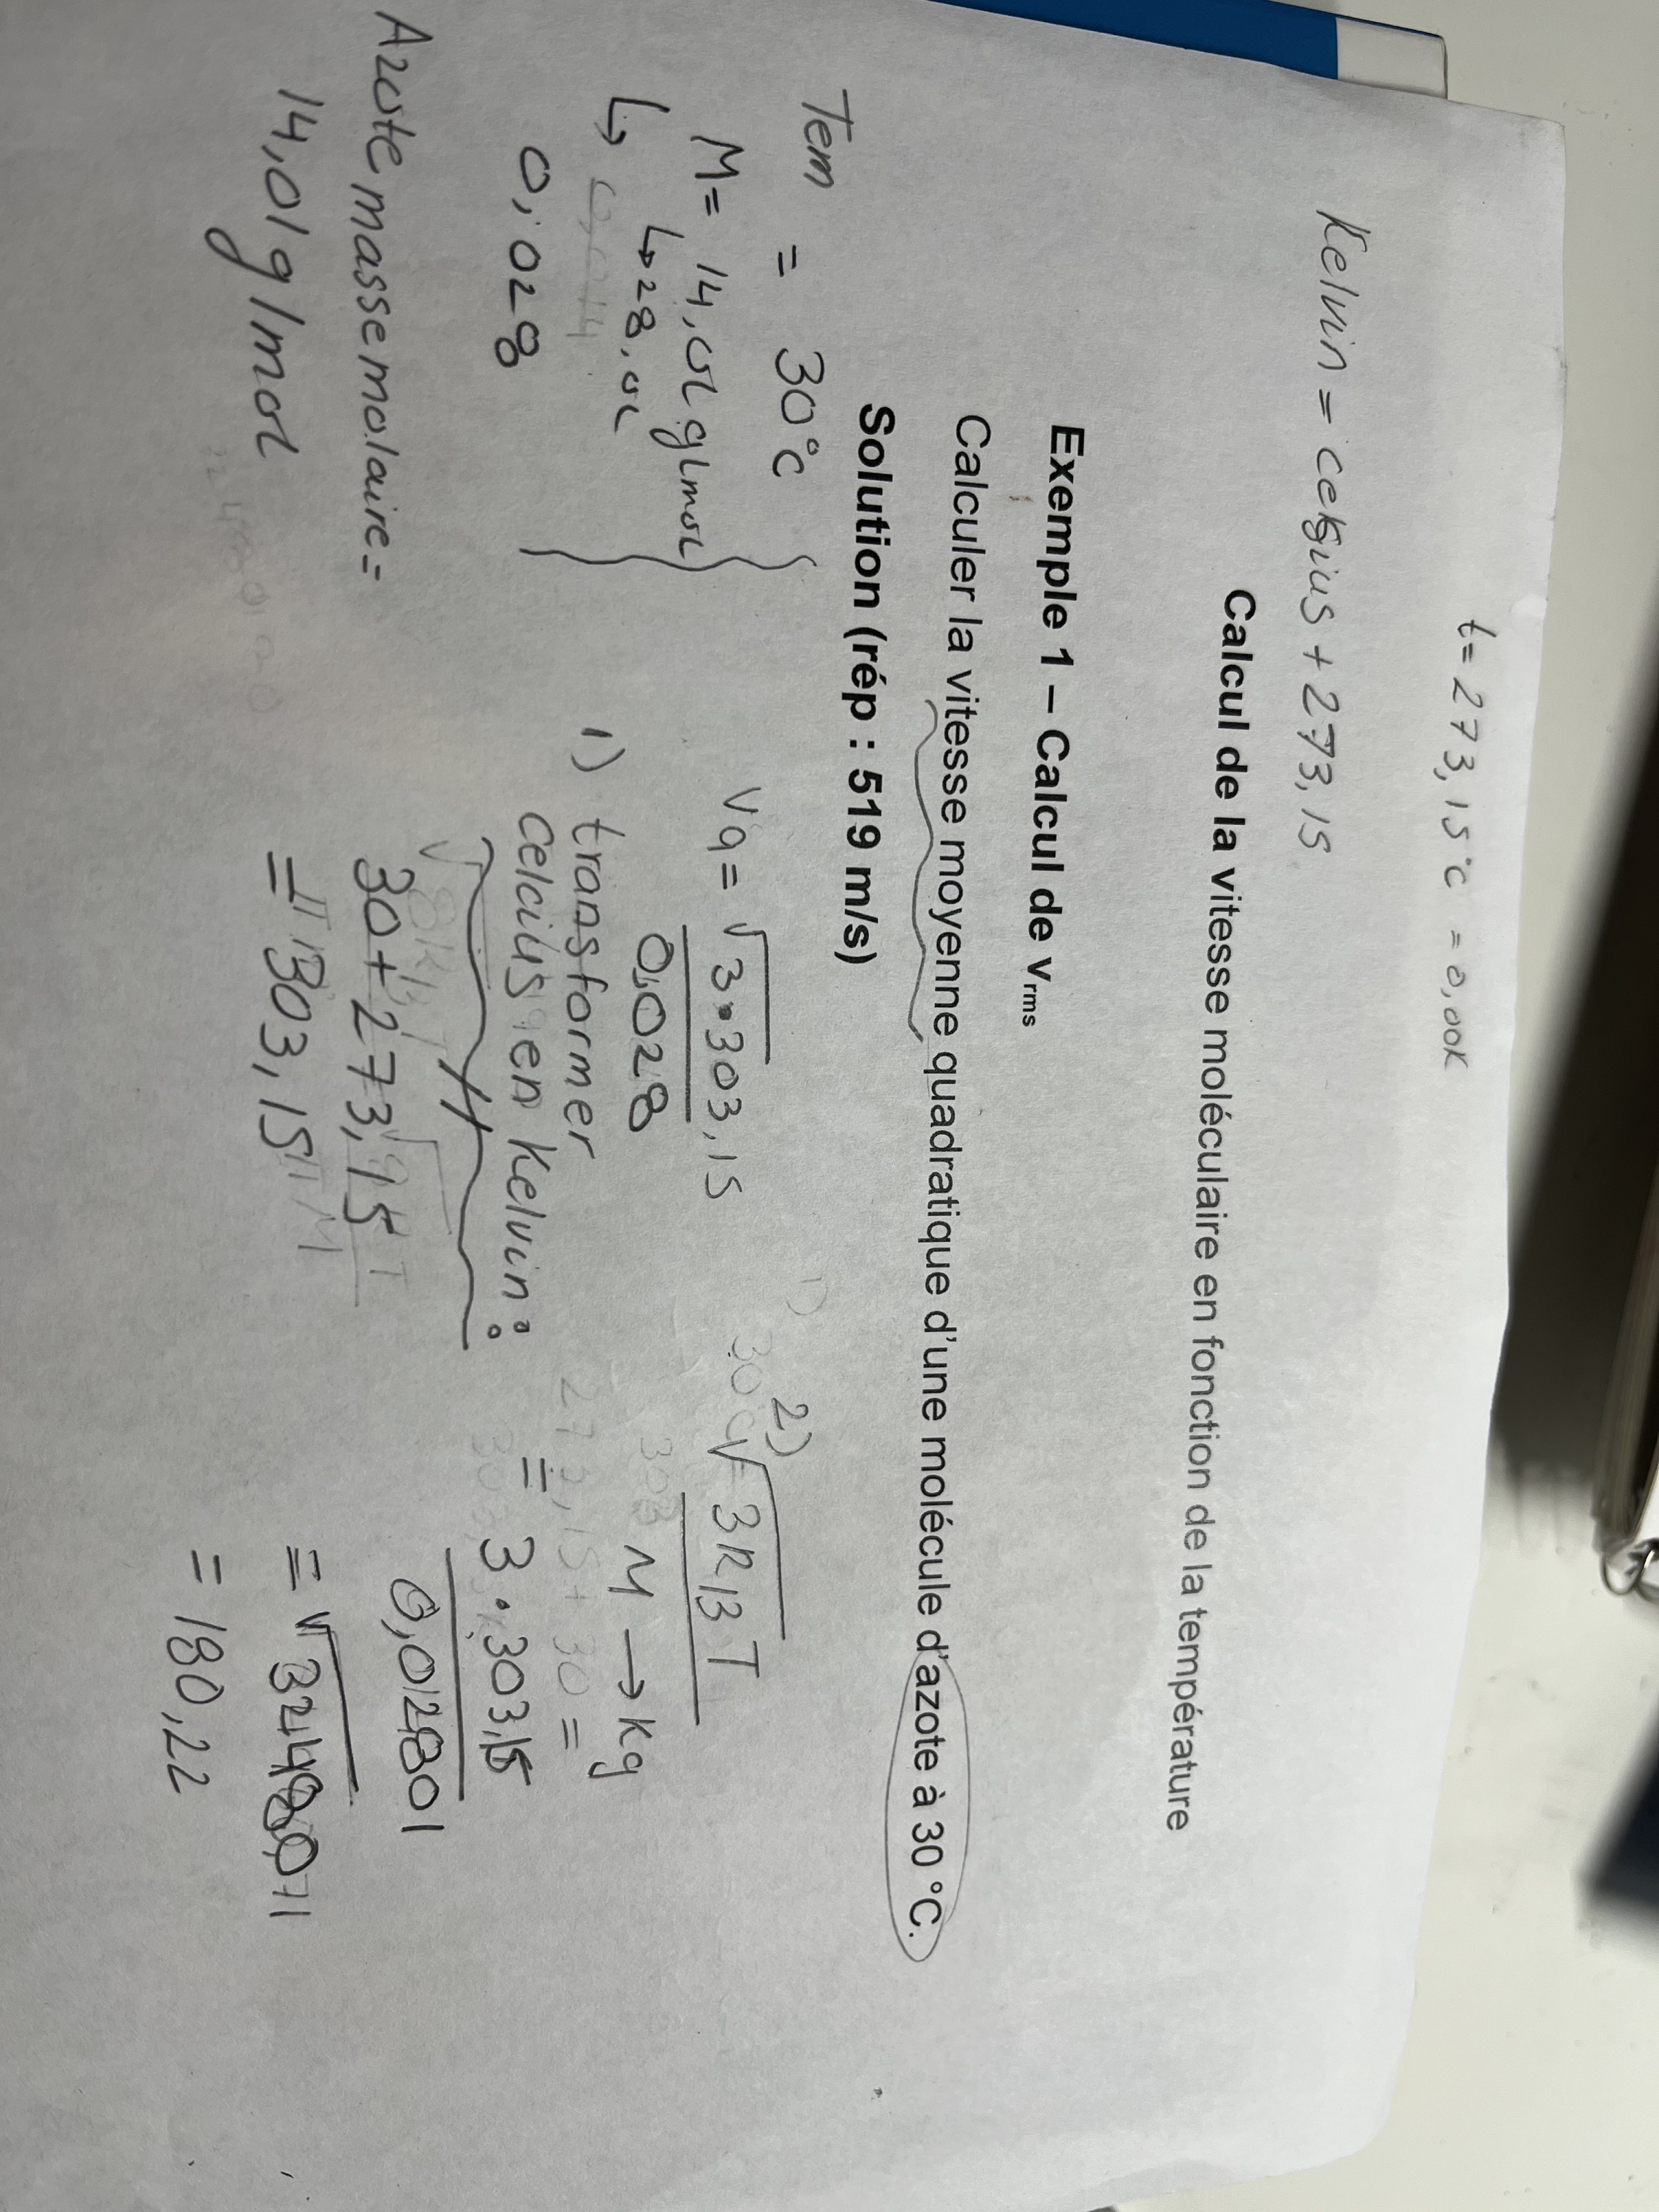 t= 273,15°C = 0,00K
Kelvin = celsius + 273,15
Calcul de la vitesse moléculaire en fonction de la température
Exemple 1 – Calcul de vrms
Calculer la vitesse moyenne quadratique d'une molécule d'azote à 30 °C.
Solution (rép : 519 m/s)
Tem = 30°C
M= 14,01 g/mol
↳ 28,01
↳ 0,014
0,028
Azote masse molaire =
14,01g/mol
Vq = √3•303,15
0,028
1) transformer
celcius en Kelvin:
30+273,15
= 303,15
2)
√3R T
M → kg
273,15+ 30 =
= 3•303,15
0,02801
= √
= 180,22